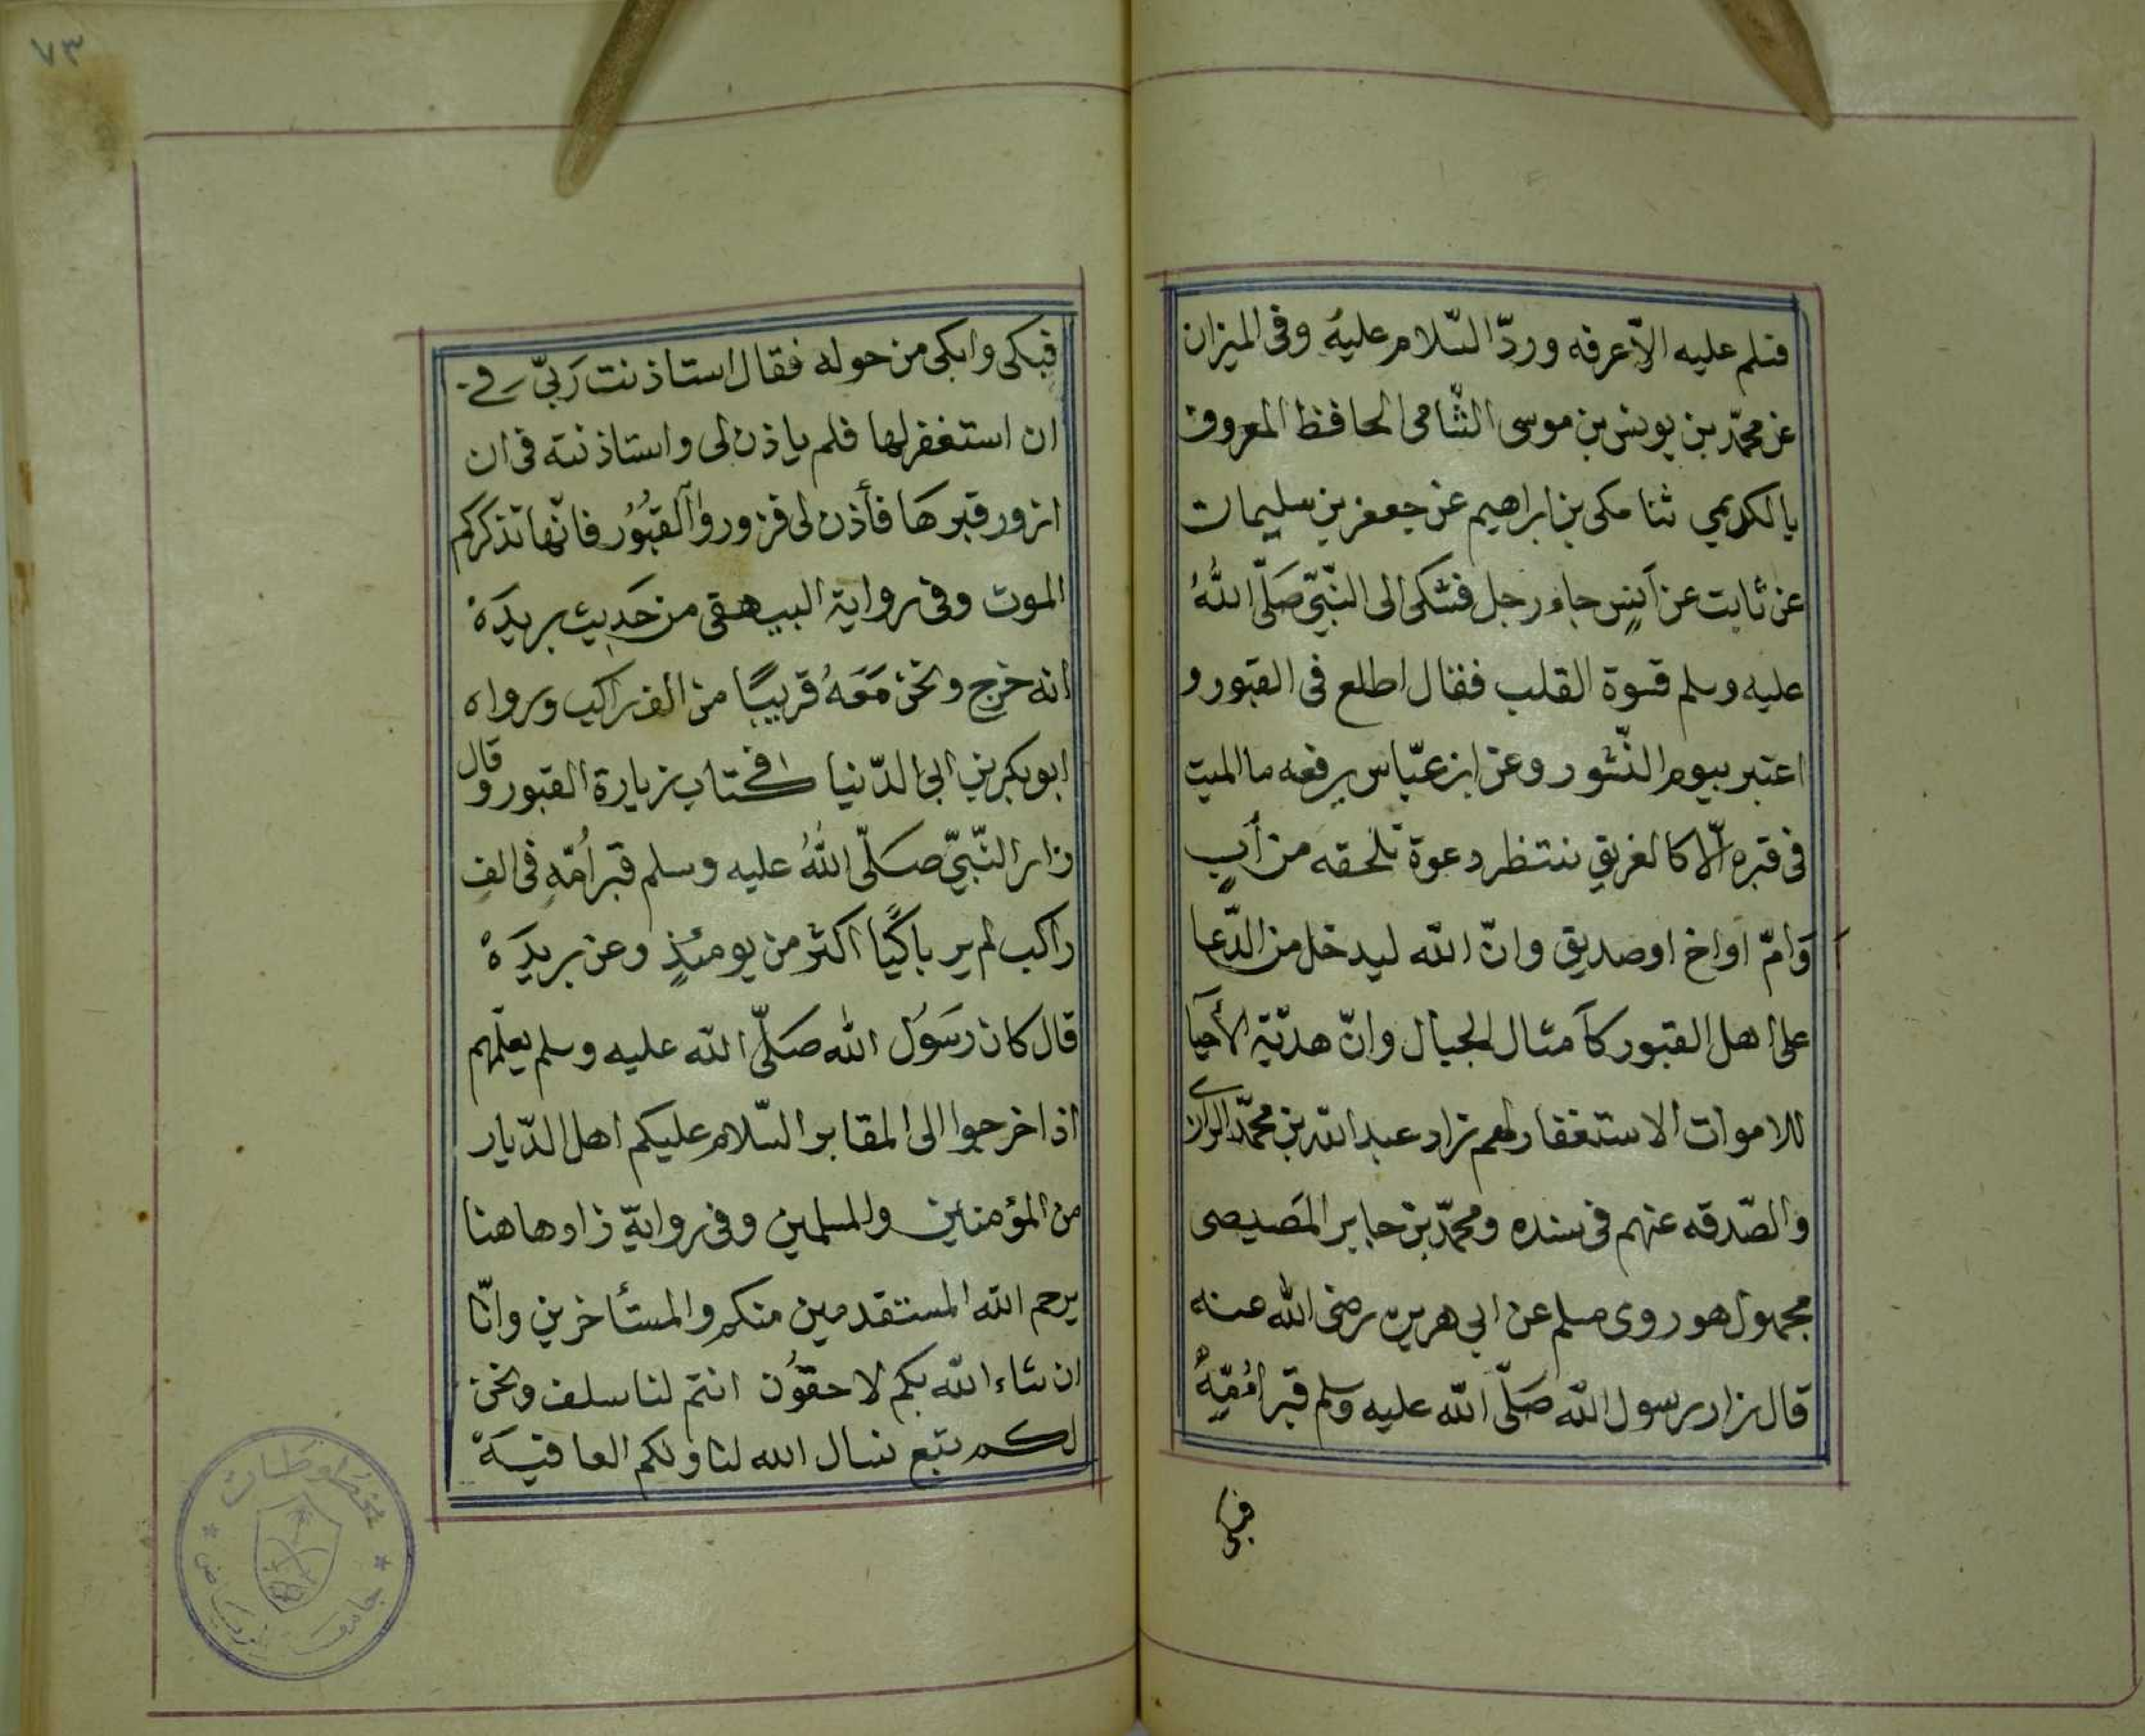 فسلم عليه الّا عرفه وردّ السّلام عليهُ وفى الميزان
عن محمّد بن يونس بن موسى الشّامى الحافظ المعروف
بالكديمي ثنا مكى بن ابراهيم عن جعفر بن سليمان
عن ثابت عن اَنسٍ جاء رجل فشكى الى النّبىّ صَلّى اللهُ
عليه وسلم قسوة القلب فقال اطلع فى القبور و
اعتبر بيوم النّشور وعن ابن عبّاس يرفعه ما الميت
فى قبره الّا كالغريق ننتظر دعوة تلحقه من أبٍ
وَامّ او اخ او صديق وانّ الله ليدخل من الدّعا
على اهل القبور كآمثال الجبال وانّ هديّة الأحيا
للاموات الاستغفار لهم زاد عبد الله بن محمّد الرازى
والصّدقه عنهم فى سنده ومحمّد بن جابر المَصيصى
مجهول هو روى مسلم عن ابي هريره رضى الله عنه
قال زار رسول الله صَلّى الله عليه وسلم قبر اُمّهِ
فبكى
٧٣
فبكى وابكى من حوله فقال استاذنت رَبىّ فى
ان استغفر لها فلم ياذن لى واستاذنته فى ان
ازور قبرها فأذن لى فزوروُا القبُوُر فانّها تذكركم
الموت وفى رواية البيهقى من حَديث بريدَة
انه خرج ونحن مَعَهُ قريبًا من الف راكب ورواه
ابو بكر بن ابى الدّنيا فى كتاب زيارة القبور وقال
زار النّبىّ صَلّى اللهُ عليه وسلم قبر اُمّهِ فى الفِ
راكب لم ير باكيًا اكثر من يومئذٍ وعن بريدَة
قال كان رَسَوُل الله صَلّى الله عليه وسلم يعلّمهم
اذا خرجوا الى المقابر السّلام عليكم اهل الدّيار
من المؤمنين والمسلمين وفى روايةٍ زاد هاهنا
يرحم الله المستقدمين منكم والمستأخرين وانّا
ان شاء الله بكم لاحقوُن انتم لنا سلف ونحن
لكم تبع نسال الله لنا ولكم العافيَة
مخطوطات
جامعة الرياض